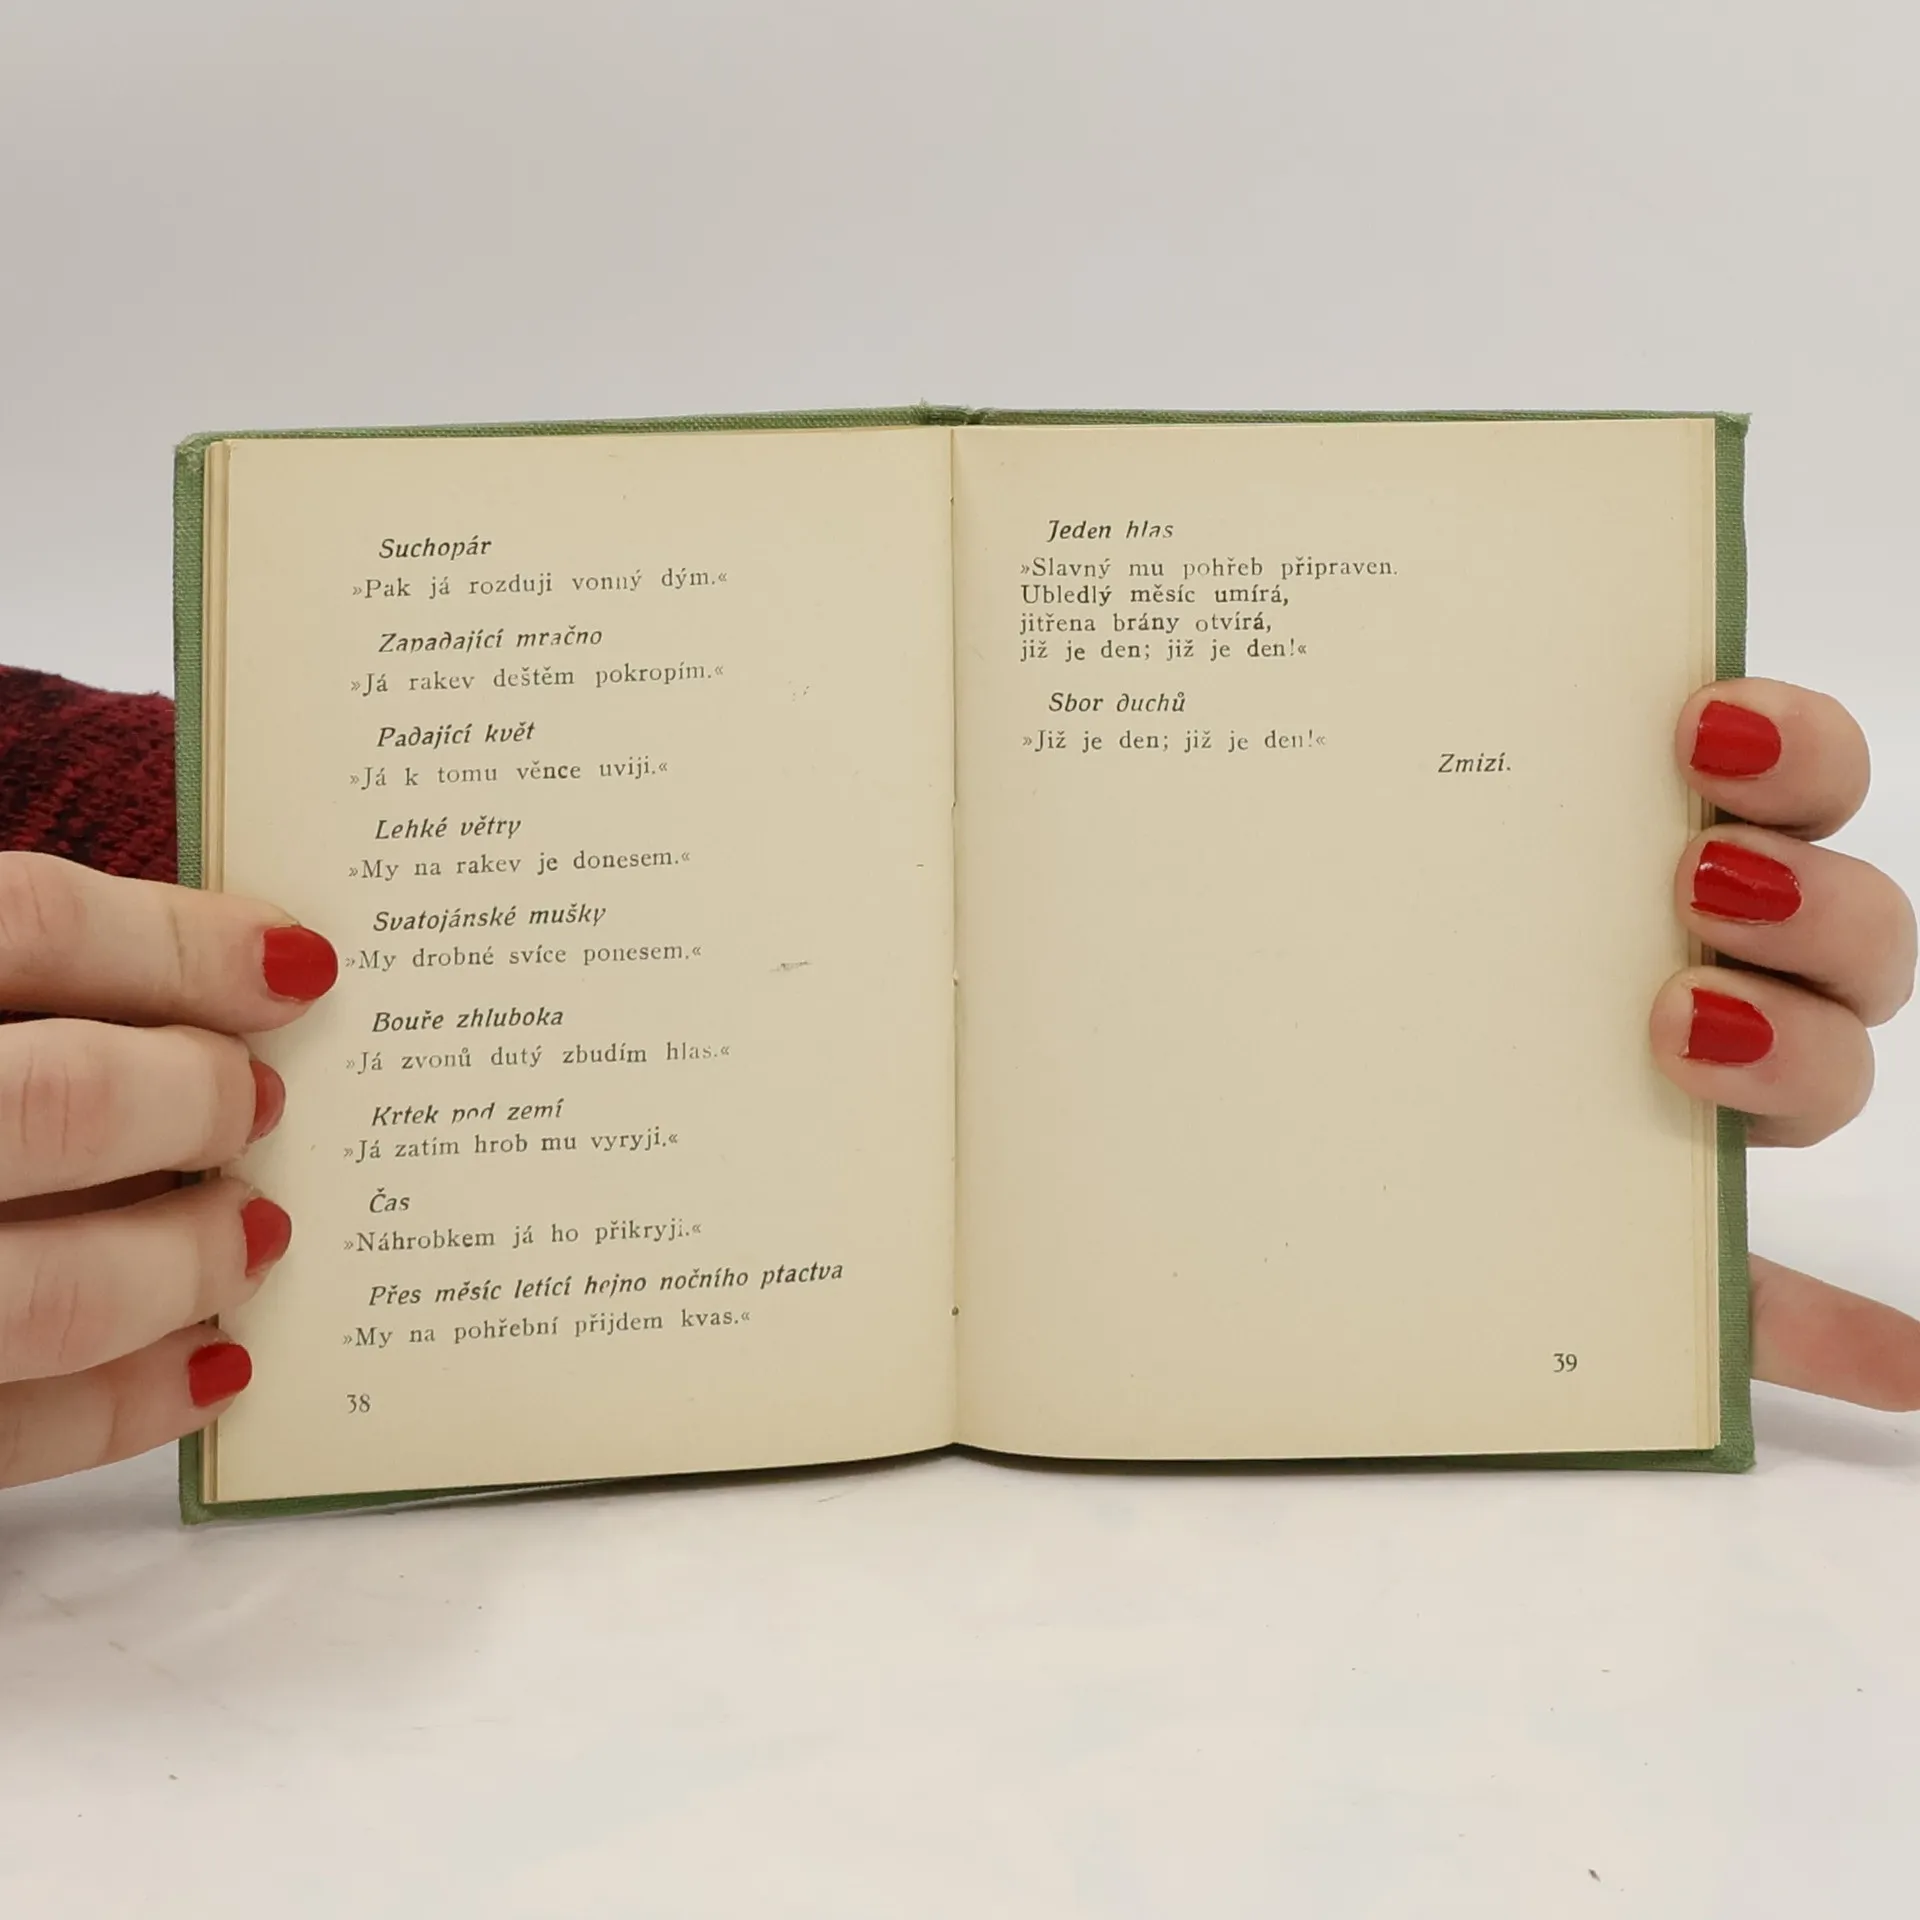 Suchopár
»Pak já rozduji vonný dým.«
Zapadající mračno
»Já rakev deštěm pokropím.«
Padající květ
»Já k tomu věnce uviji.«
Lehké větry
»My na rakev je donesem.«
Svatojánské mušky
»My drobné svíce ponesem.«
Bouře zhluboka
»Já zvonů dutý zbudím hlas.«
Krtek pod zemí
»Já zatím hrob mu vyryji.«
Čas
»Náhrobkem já ho přikryji.«
Přes měsíc letící hejno nočního ptactva
»My na pohřební přijdem kvas.«
38
Jeden hlas
»Slavný mu pohřeb připraven.
Ubledlý měsíc umírá,
jitřena brány otvírá,
již je den; již je den!«
Sbor duchů
»Již je den; již je den!«
Zmizí.
39